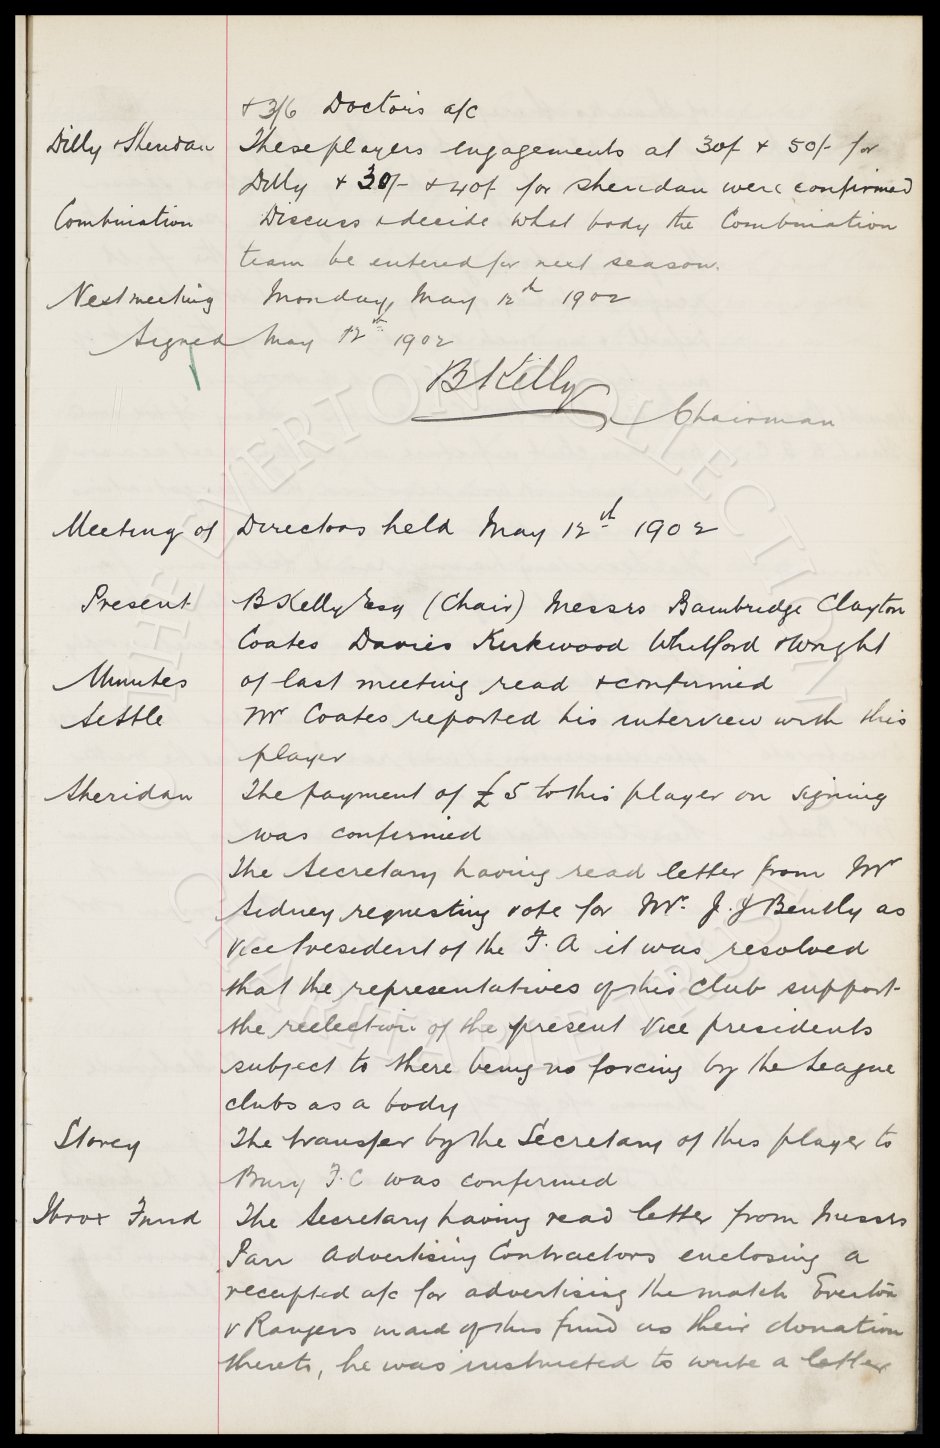 + 3/6 Doctors a/c
Dilly & Sheridan These players engagements at 30/- & 50/- for
Dilly & 30/- & 40/- for Sheridan were confirmed
Combination Discuss & decide what body the Combination
team be entered for next season.
Next meeting Monday, May 12th 1902
Signed May 12th 1902
B Kelly
Chairman
Meeting of Directors held May 12th 1902
Present B Kelly Esq (Chair) Messrs Bainbridge Clayton
Coates Davies Kirkwood Whitford & Wright
Minutes of last meeting read & confirmed
Settle Mr Coates reported his interview with this
player
Sheridan The payment of £5 to this player on signing
was confirmed
The Secretary having read letter from Mr
Sidney requesting vote for Mr. J. J Bently as
Vice President of the F. A it was resolved
that the representatives of this club support
the reelection of the present Vice presidents
subject to there being no forcing by the League
clubs as a body
Storey The transfer by the Secretary of this player to
Bury F. C was confirmed
Ibrox Fund The Secretary having read letter from Messrs
Parr Advertising Contractors enclosing a
receipted a/c for advertising the match Everton
v Rangers in aid of this fund as their donation
thereto, he was instructed to write a letter
THE EVERTON COLLECTION
CHARITABLE TRUST